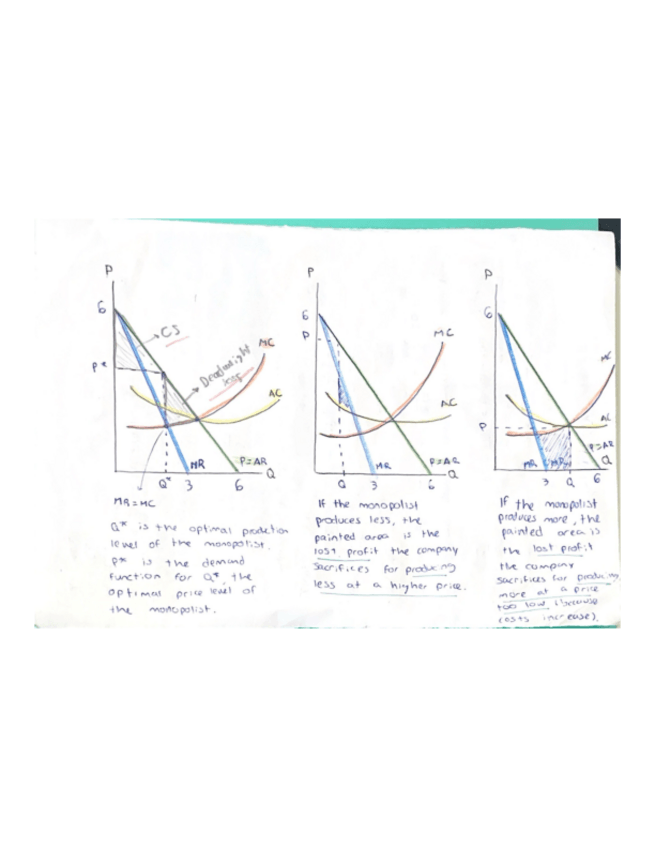 P
6
CS
Deadweight
loss
MC
P*
AC
MR
P=AR
Q*
3
6
Q
MR=MC
Q* is the optimal production
level of the monopolist.
P* is the demand
function for Q*, the
optimal price level of
the monopolist.
P
6
P
MC
AC
MR
P=AR
Q
3
6
Q
If the monopolist
produces less, the
painted area is the
lost profit the company
sacrifices for producing
less at a higher price.
P
6
MC
P
AC
P=AR
MR
3
Q
6
Q
If the monopolist
produces more, the
painted area is
the lost profit
the company
sacrifices for producing
more at a price
too low (because
costs increase).